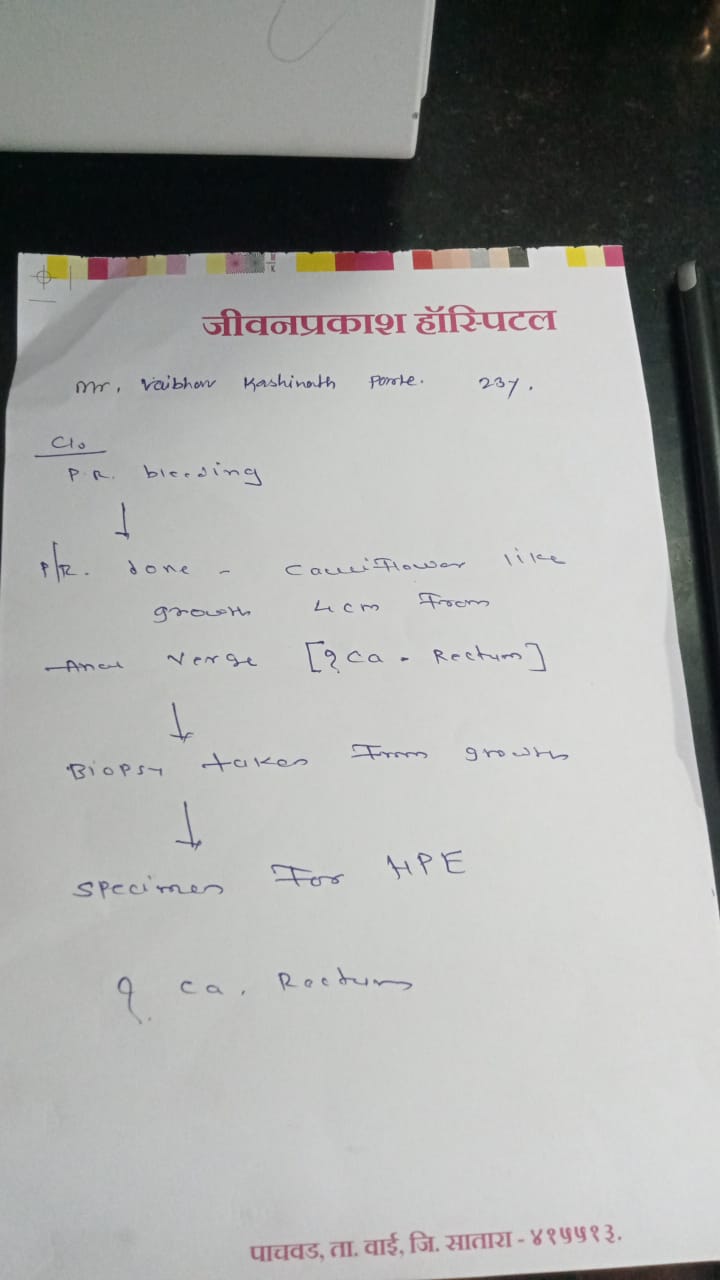 जीवनप्रकाश हॉस्पिटल
Mr. Vaibhav Kashinath 23y.
C/o
P.R. bleeding
↓
P/R. done - Cauliflower like
growth 4cm From
Anal Verge [? Ca. Rectum]
↓
Biopsy taken From growth
↓
Specimen For HPE
? Ca. Rectum
पाचवड, ता. वाई, जि. सातारा - ४१५५१३.